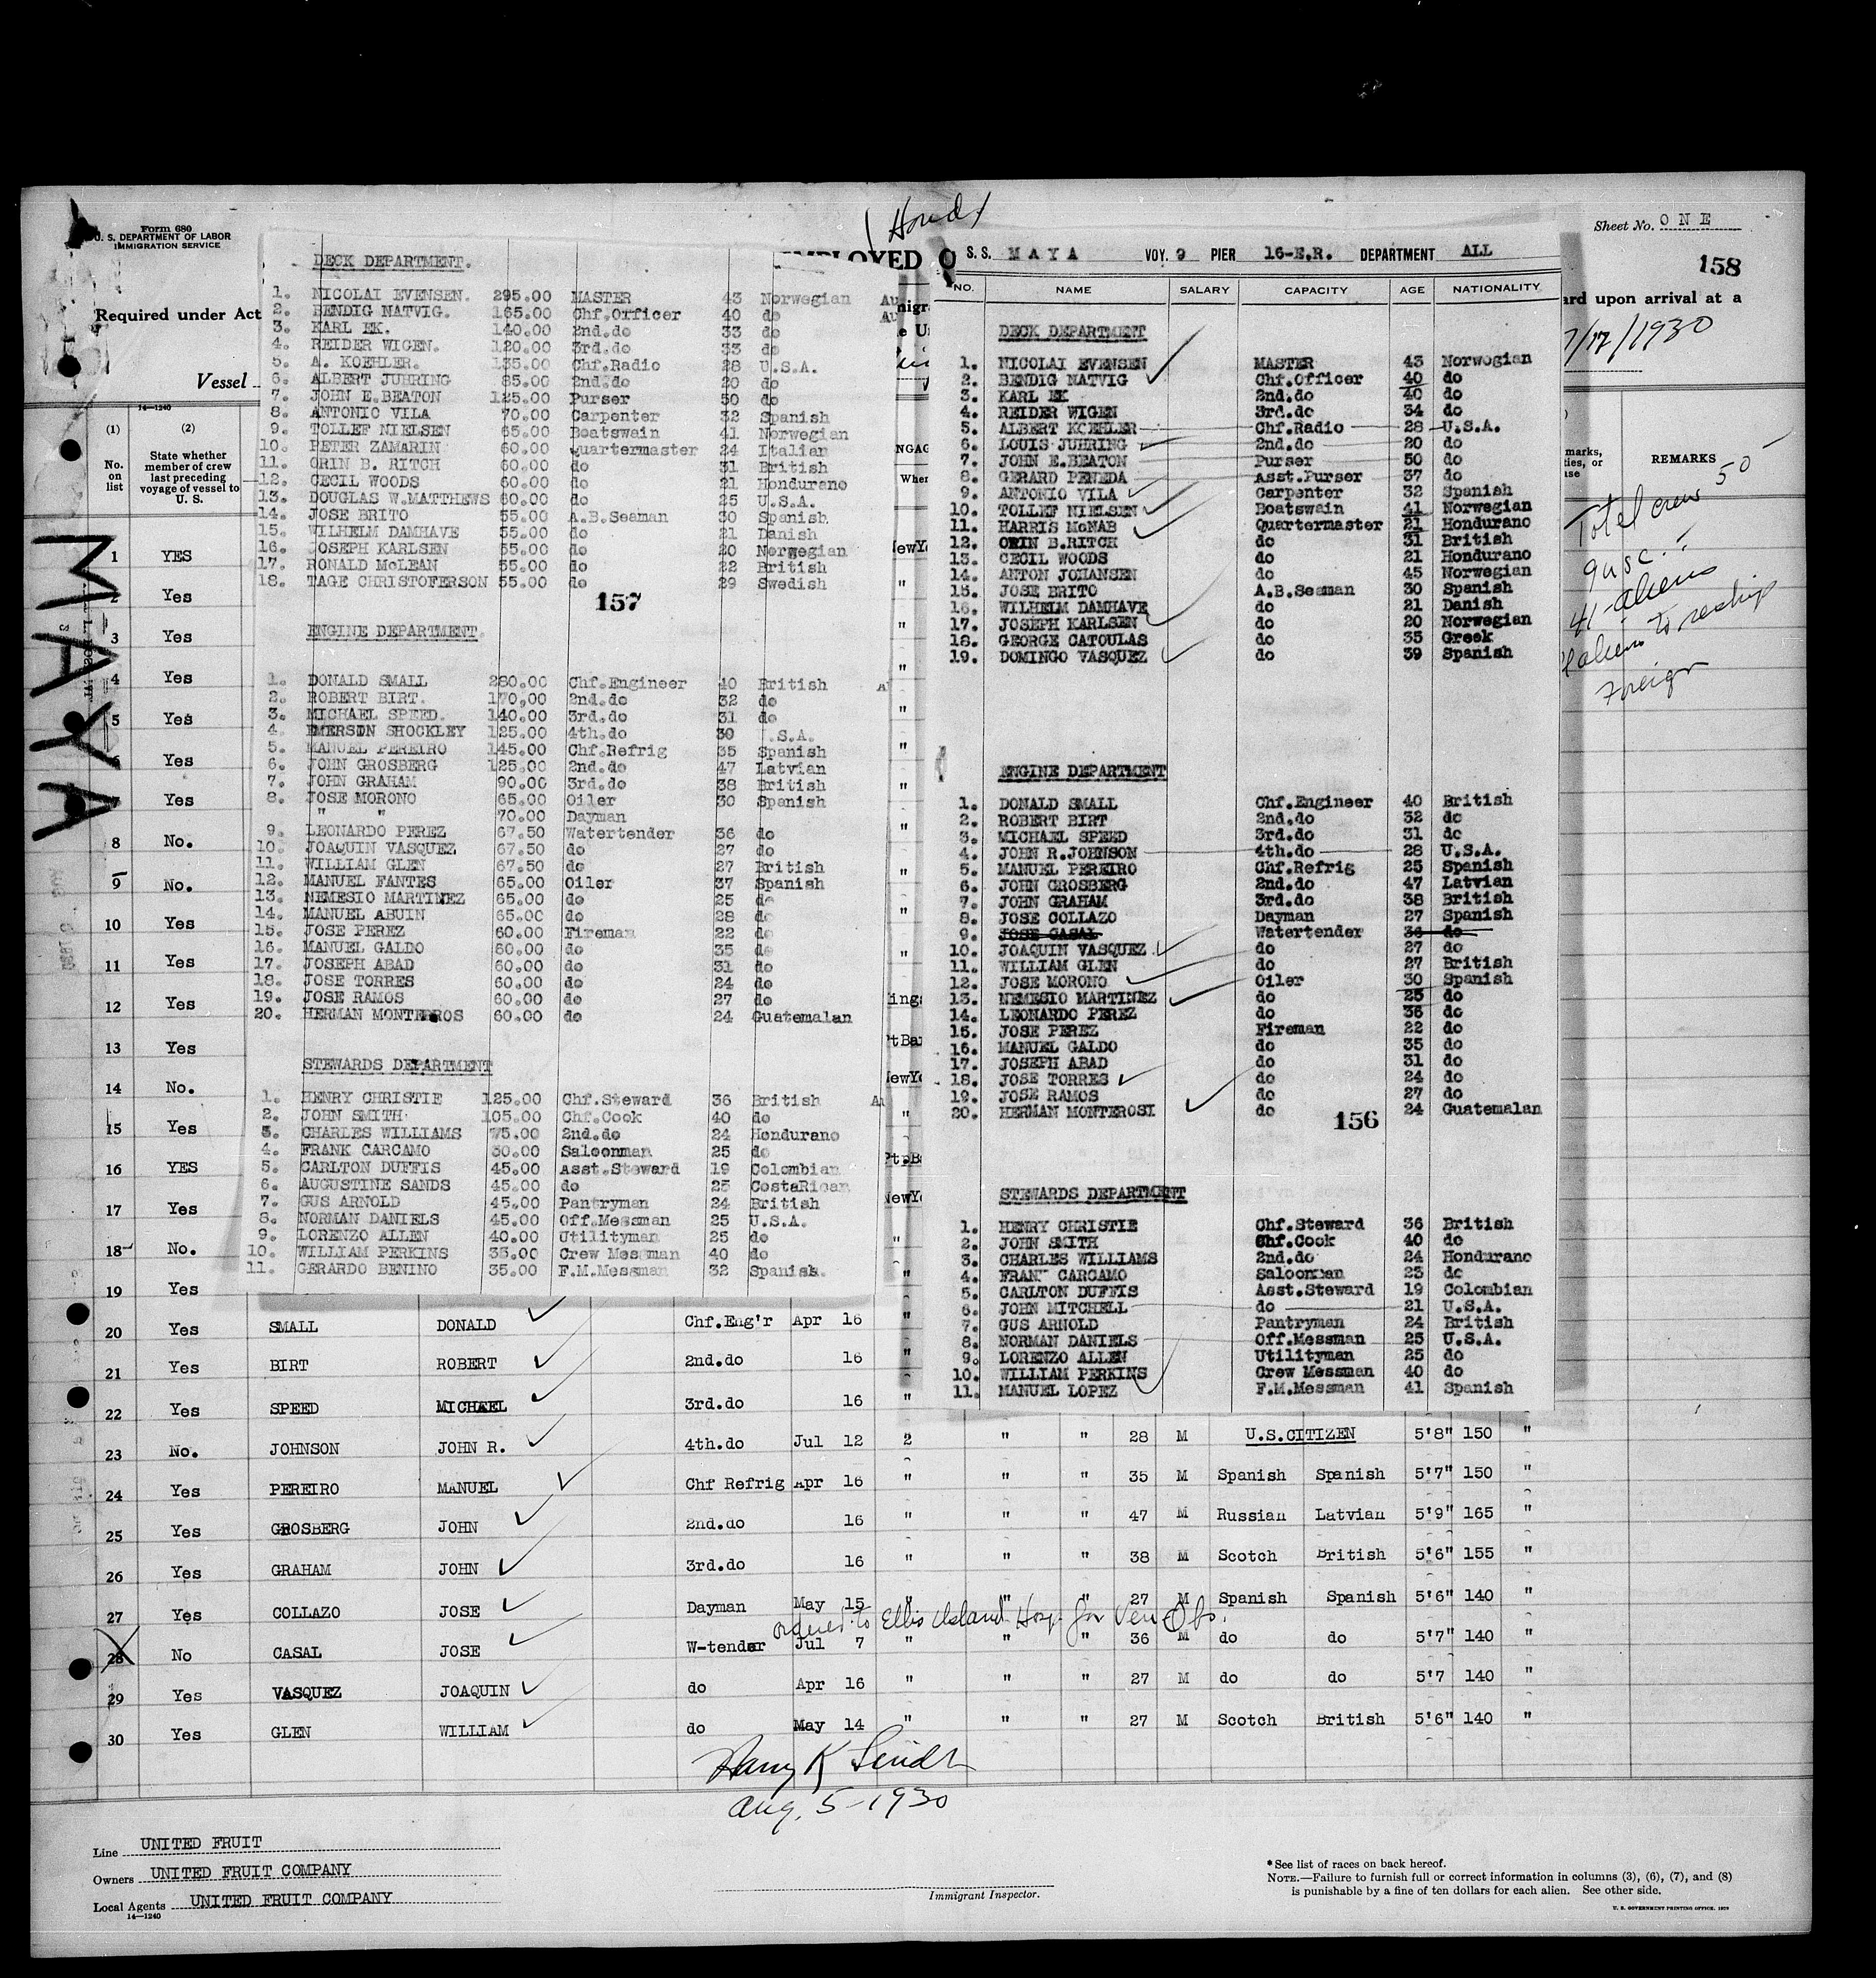 Hond
Form 680
U. S. DEPARTMENT OF LABOR
IMMIGRATION SERVICE
Sheet No. ONE
158
EMPLOYED O
Required under Act
ard upon arrival at a
7/17/1930
Vessel
14—1240
(1) (2)
No. on list
State whether member of crew last preceding voyage of vessel to U. S.
REMARKS
Total crew 50
9 usc
41 aliens
aliens to reship
Foreign
MAYA
1 YES
2 Yes
3 Yes
4 Yes
5 Yes
6 Yes
7 Yes
8 No.
9 No.
10 Yes
11 Yes
12 Yes
13 Yes
14 No.
15 Yes
16 YES
17 Yes
18 No.
19 Yes
DECK DEPARTMENT.
1. NICOLAI EVENSEN. 295.00 MASTER 43 Norwegian
2. BENDIG NATVIG. 165.00 Chf.Officer 40 do
3. KARL EK. 140.00 2nd.do 33 do
4. REIDER WIGEN. 120.00 3rd.do 33 do
5. A. KOEHLER. 135.00 Chf.Radio 28 U.S.A.
6. ALBERT JUHRING 85.00 2nd.do 20 do
7. JOHN E.BEATON 125.00 Purser 50 do
8. ANTONIO VILA 70.00 Carpenter 32 Spanish
9. TOLLEF NIELSEN 65.00 Boatswain 41 Norwegian
10. PETER ZAMARIN 60.00 Quartermaster 24 Italian
11. ORIN B. RITCH 60.00 do 31 British
12. CECIL WOODS 60.00 do 21 Hondurano
13. DOUGLAS W.MATTHEWS 60.00 do 25 U.S.A.
14. JOSE BRITO 55.00 A.B.Seaman 30 Spanish
15. WILHELM DAMHAVE 55.00 do 21 Danish
16. JOSEPH KARLSEN 55.00 do 20 Norwegian
17. RONALD McLEAN 55.00 do 22 British
18. TAGE CHRISTOFERSON 55.00 do 29 Swedish
157
ENGINE DEPARTMENT.
1. DONALD SMALL 280.00 Chf.Engineer 40 British
2. ROBERT BIRT. 170.00 2nd.do 32 do
3. MICHAEL SPEED. 140.00 3rd.do 31 do
4. EMERSON SHOCKLEY 125.00 4th.do 30 .S.A.
5. MANUEL PEREIRO 145.00 Chf.Refrig 35 Spanish
6. JOHN GROSBERG 125.00 2nd.do 47 Latvian
7. JOHN GRAHAM 90.00 3rd.do 38 British
8. JOSE MORONO 65.00 Oiler 30 Spanish
" " 70.00 Dayman
9. LEONARDO PEREZ 67.50 Watertender 36 do
10. JOAQUIN VASQUEZ 67.50 do 27 do
11. WILLIAM GLEN 67.50 do 27 British
12. MANUEL FANTES 65.00 Oiler 37 Spanish
13. NEMESIO MARTINEZ 65.00 do 25 do
14. MANUEL ABUIN 65.00 do 28 do
15. JOSE PEREZ 60.00 Fireman 22 do
16. MANUEL GALDO 60.00 do 35 do
17. JOSEPH ABAD 60.00 do 31 do
18. JOSE TORRES 60.00 do 24 do
19. JOSE RAMOS 60.00 do 27 do
20. HERMAN MONTEROS 60.00 do 24 Guatemalan
STEWARDS DEPARTMENT
1. HENRY CHRISTIE 125.00 Chf.Steward 36 British
2. JOHN SMITH 105.00 Chf.Cook 40 do
3. CHARLES WILLIAMS 75.00 2nd.do 24 Hondurano
4. FRANK CARCAMO 30.00 Saloonman 25 do
5. CARLTON DUFFIS 45.00 Asst.Steward 19 Colombian
6. AUGUSTINE SANDS 45.00 do 25 CostaRican
7. GUS ARNOLD 45.00 Pantryman 24 British
8. NORMAN DANIELS 45.00 Off.Messman 25 U.S.A.
9. LORENZO ALLEN 40.00 Utilityman 25 do
10. WILLIAM PERKINS 35.00 Crew Messman 40 do
11. GERARDO BENINO 35.00 F.M.Messman 32 Spanish.
S. S. MAYA VOY. 9 PIER 16-E.R. DEPARTMENT ALL
NO. NAME SALARY CAPACITY AGE NATIONALITY
DECK DEPARTMENT
1. NICOLAI EVENSEN MASTER 43 Norwegian
2. BENDIG NATVIG Chf.Officer 40 do
3. KARL EK 2nd.do 40 do
4. REIDER WIGEN 3rd.do 34 do
5. ALBERT KOEHLER Chf.Radio 28 U.S.A.
6. LOUIS JUHRING 2nd.do 20 do
7. JOHN E.BEATON Purser 50 do
8. GERARD PENEDA Asst.Purser 37 do
9. ANTONIO VILA Carpenter 32 Spanish
10. TOLLEF NIELSEN Boatswain 41 Norwegian
11. HARRIS McNAB Quartermaster 21 Hondurano
12. ORIN B.RITCH do 31 British
13. CECIL WOODS do 21 Hondurano
14. ANTON JOHANSEN do 45 Norwegian
15. JOSE BRITO A.B.Seaman 30 Spanish
16. WILHELM DAMHAVE do 21 Danish
17. JOSEPH KARLSEN do 20 Norwegian
18. GEORGE CATOULAS do 35 Greek
19. DOMINGO VASQUEZ do 39 Spanish
ENGINE DEPARTMENT
1. DONALD SMALL Chf.Engineer 40 British
2. ROBERT BIRT 2nd.do 32 do
3. MICHAEL SPEED 3rd.do 31 do
4. JOHN R.JOHNSON 4th.do 28 U.S.A.
5. MANUEL PEREIRO Chf.Refrig 25 Spanish
6. JOHN GROSBERG 2nd.do 47 Latvian
7. JOHN GRAHAM 3rd.do 38 British
8. JOSE COLLAZO Dayman 27 Spanish
9. JOSE CASAL Watertender 36 do
10. JOAQUIN VASQUEZ do 27 do
11. WILLIAM GLEN do 27 British
12. JOSE MORONO Oiler 30 Spanish
13. NEMESIO MARTINEZ do 25 do
14. LEONARDO PEREZ do 36 do
15. JOSE PEREZ Fireman 22 do
16. MANUEL GALDO do 35 do
17. JOSEPH ABAD do 31 do
18. JOSE TORRES do 24 do
19. JOSE RAMOS do 27 do
20. HERMAN MONTEROSI do 24 Guatemalan
156
STEWARDS DEPARTMENT
1. HENRY CHRISTIE Chf.Steward 36 British
2. JOHN SMITH Chf.Cook 40 do
3. CHARLES WILLIAMS 2nd.do 24 Hondurano
4. FRANK CARCAMO Saloonman 23 do
5. CARLTON DUFFIS Asst.Steward 19 Colombian
6. JOHN MITCHELL do 21 U.S.A.
7. GUS ARNOLD Pantryman 24 British
8. NORMAN DANIELS Off.Messman 25 U.S.A.
9. LORENZO ALLEN Utilityman 25 do
10. WILLIAM PERKINS Crew Messman 40 do
11. MANUEL LOPEZ F.M.Messman 41 Spanish
20 Yes SMALL DONALD Chf.Eng'r Apr 16 "
21 Yes BIRT ROBERT 2nd.do 16 "
22 Yes SPEED MICHAEL 3rd.do 16 "
23 No. JOHNSON JOHN R. 4th.do Jul 12 2 " " 28 M U.S.CITIZEN 5'8" 150 "
24 Yes PEREIRO MANUEL Chf Refrig Apr 16 " " " 35 M Spanish Spanish 5'7" 150 "
25 Yes GROSBERG JOHN 2nd.do 16 " " " 47 M Russian Latvian 5'9" 165 "
26 Yes GRAHAM JOHN 3rd.do 16 " " " 38 M Scotch British 5'6" 155 "
27 Yes COLLAZO JOSE Dayman May 15 " " " 27 M Spanish Spanish 5'6" 140 "
ordered to Ellis Island Hosp. for Ven Obs.
28 No CASAL JOSE W-tender Jul 7 " " " 36 M do do 5'7" 140 "
29 Yes VASQUEZ JOAQUIN do Apr 16 " " " 27 M do do 5'7 140 "
30 Yes GLEN WILLIAM do May 14 " " " 27 M Scotch British 5'6" 140 "
Harry K
Aug. 5-1930
Line UNITED FRUIT
Owners UNITED FRUIT COMPANY
Local Agents UNITED FRUIT COMPANY
14—1240
Immigrant Inspector.
* See list of races on back hereof.
NOTE.—Failure to furnish full or correct information in columns (3), (6), (7), and (8)
is punishable by a fine of ten dollars for each alien. See other side.
U. S. GOVERNMENT PRINTING OFFICE. 1929